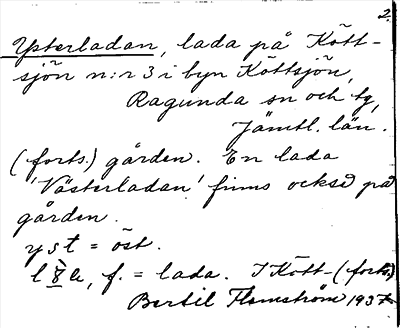 2.
Ysterladan, lada på Kött-
sjön n:r 3 i byn Köttsjön,
Ragunda sn och tg,
Jämtl. län.
(forts.) gården. En lada
'Västerladan' finns också på
gården.
yst = öst.
f. = lada. I Kött- (forts.)
Bertil Flemström 1937